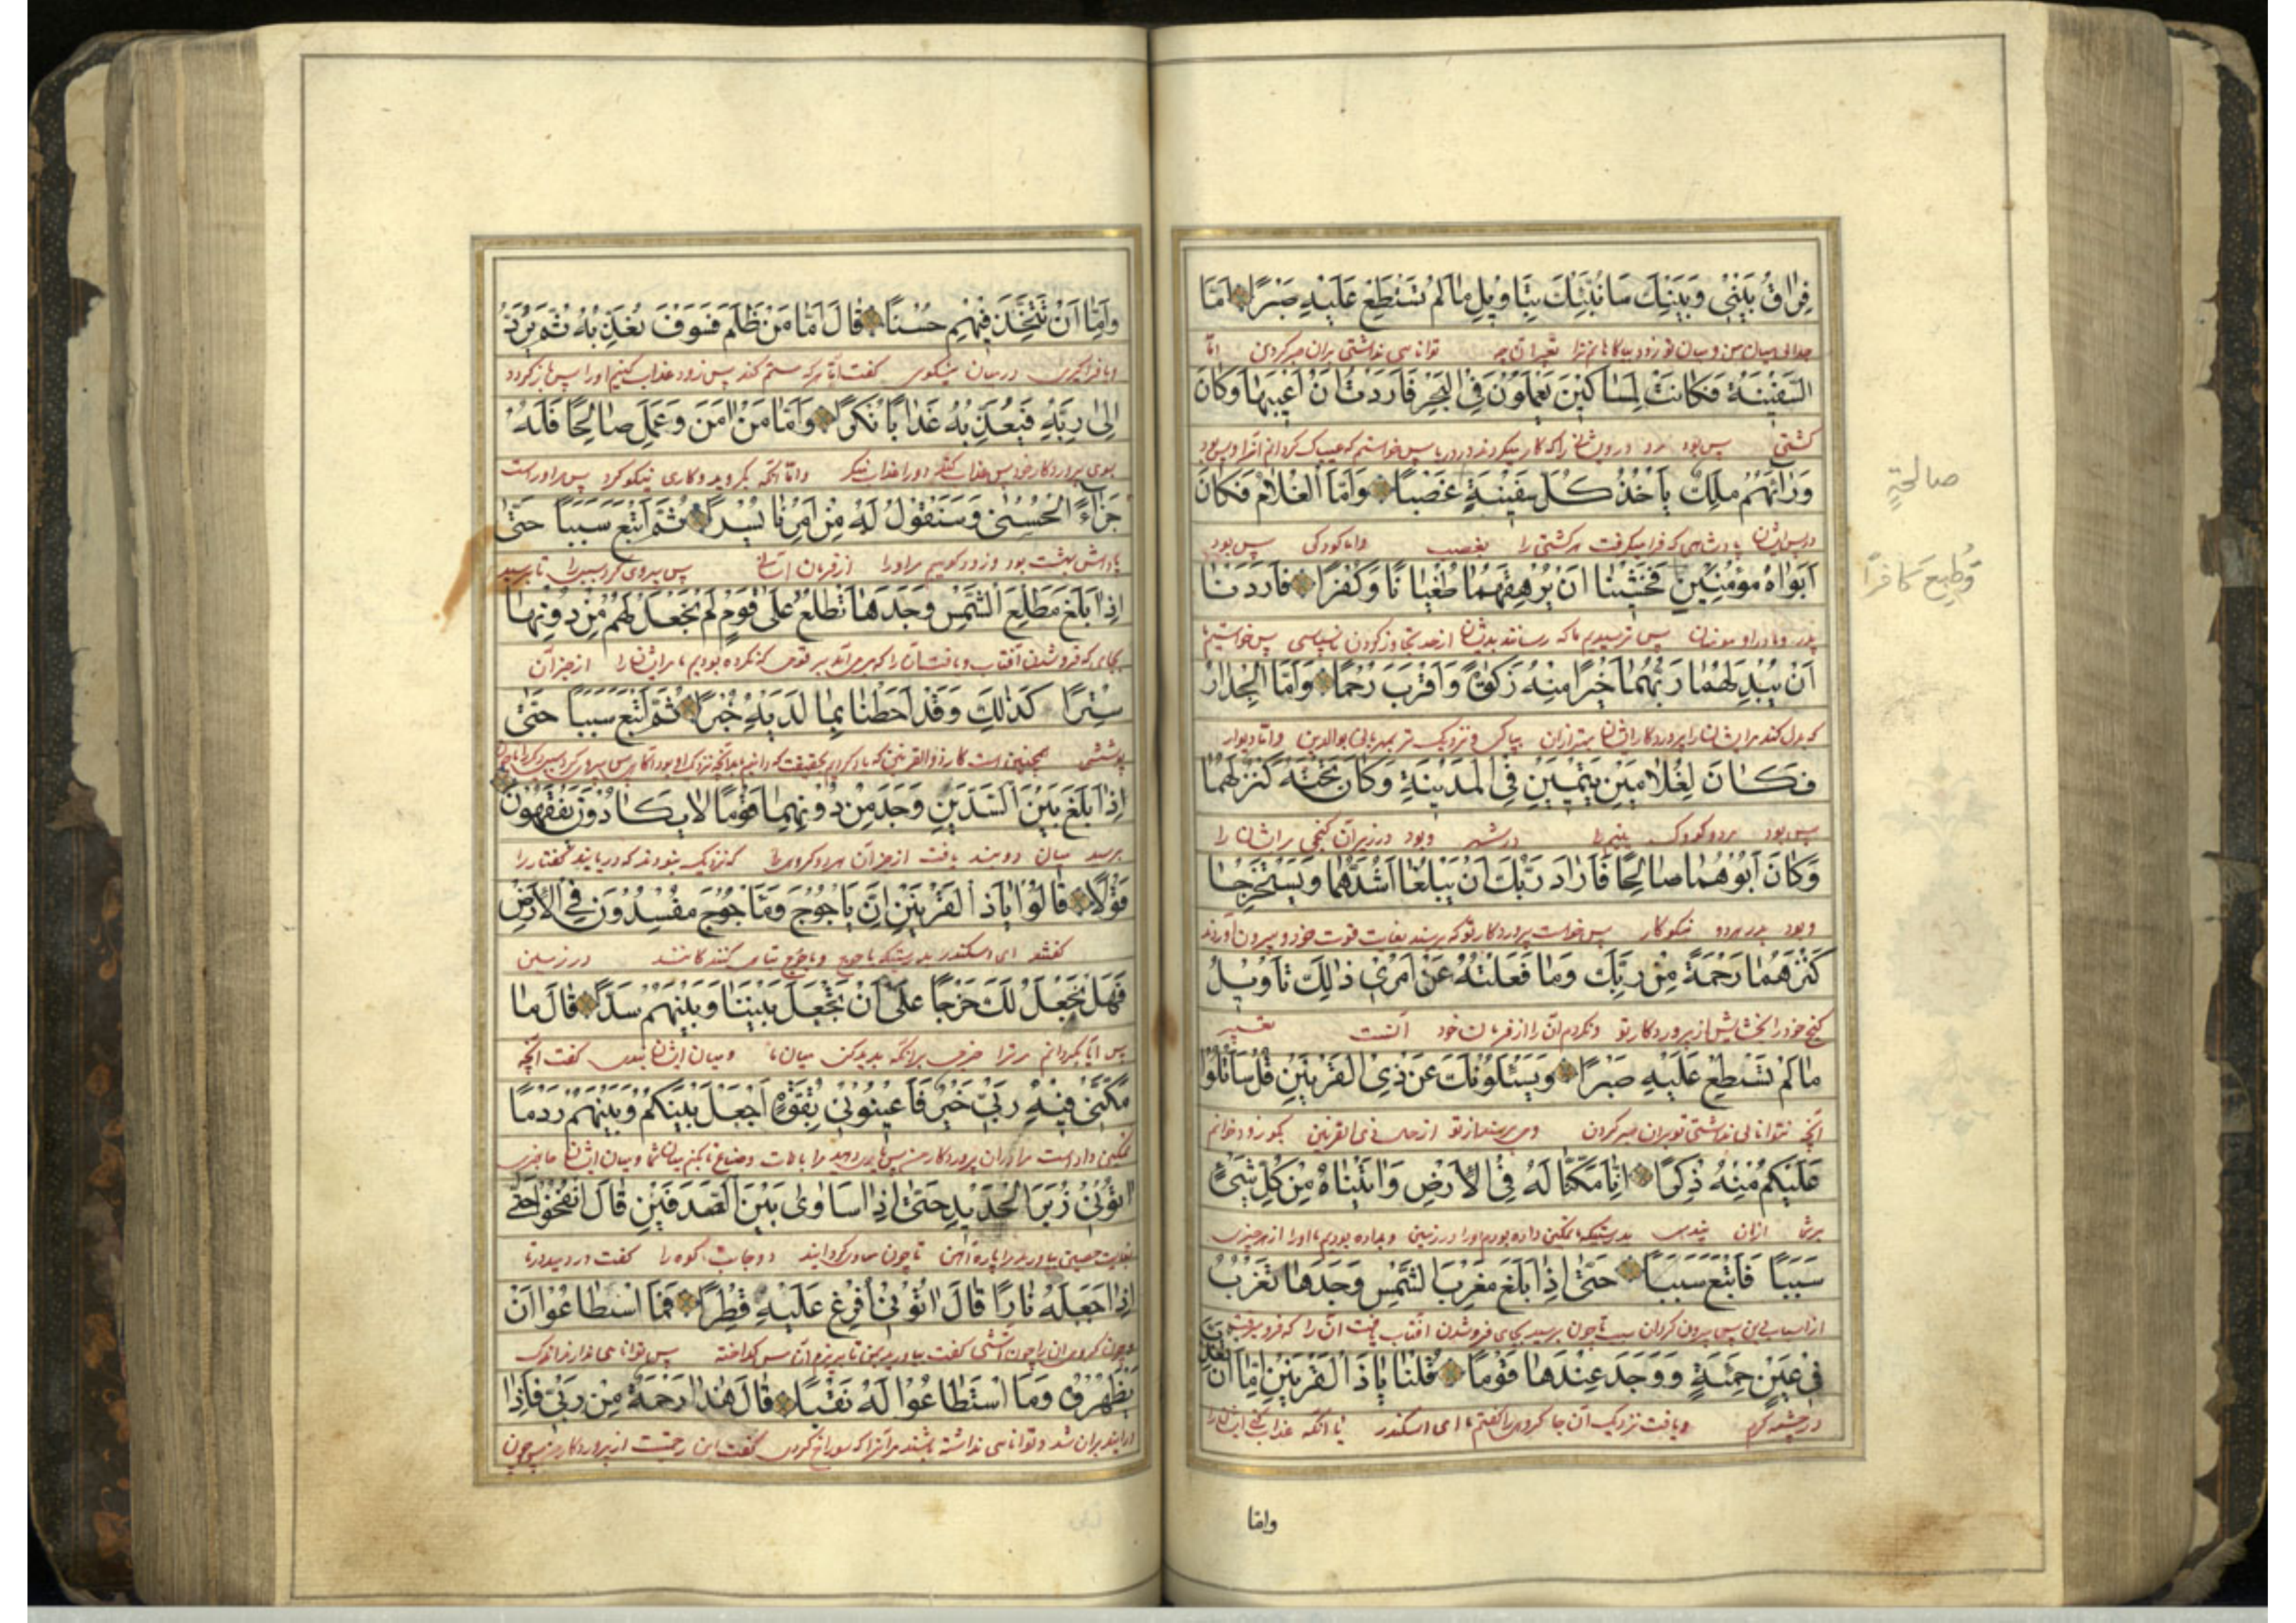 فِرَاقُ بَيْنِي وَبَيْنِكَ سَأُنَبِّئُكَ بِتَأْوِيلِ مَا لَمْ تَسْتَطِعْ عَلَيْهِ صَبْرًا اَمَّا
جدائی میان من و میان تو زود بیاگاهانم ترا بتعبیر آن چه توانایی نداشتی بران صبر کردن امّا
السَّفِينَةُ فَكَانَتْ لِمَسَاكِينَ يَعْمَلُونَ فِي الْبَحْرِ فَاَرَدْتُ اَنْ اَعِيبَهَا وَكَانَ
کشتی پس بود درویشانرا که کار میکردند در دریا پس خواستم که
وَرَائَهُمْ مَلِكٌ يَأْخُذُ كُلَّ سَفِينَةٍ غَصْبًا وَاَمَّا الْغُلَامُ فَكَانَ
پادشاهی که فرا میگرفت هر کشتی را بغصب واما کودکی پس بود
اَبَوَاهُ مُؤْمِنَيْنِ فَخَشِينَا اَنْ يُرْهِقَهُمَا طُغْيَانًا وَكُفْرًا فَاَرَدْنَا
پدر و مادر او مومنان پس ترسیدیم ما که رسانند بدیشان از حد تجاوز کردن ناسپاسی پس خواستیم
اَنْ يُبْدِلَهُمَا رَبُّهُمَا خَيْرًا مِنْهُ زَكٰوةً وَاَقْرَبَ رُحْمًا وَاَمَّا الْجِدَارُ
که بدل کند مر ایشانرا پروردگار ایشان بهتر ازان بپاکی و نزدیک تر بمهربانی بوالدین واما دیوار
فَكَانَ لِغُلَامَيْنِ يَتِيمَيْنِ فِي الْمَدِينَةِ وَكَانَ تَحْتَهُ كَنْزٌ لَهُمَا
پس بود دو کودک یتیم را در شهر وبود در زیر آن گنجی مر ایشان را
وَكَانَ اَبُوهُمَا صَالِحًا فَاَرَادَ رَبُّكَ اَنْ يَبْلُغَا اَشُدَّهُمَا وَيَسْتَخْرِجَا
وبود پدر هردو نیکوکار پس خواست پروردگار تو که برسند بغایت قوت خود و بیرون آورند
كَنْزَهُمَا رَحْمَةً مِنْ رَبِّكَ وَمَا فَعَلْتُهُ عَنْ اَمْرِي ذٰلِكَ تَأْوِيلُ
گنج خود را بخشایش از پروردگار تو ونکردم آن را از فرمان خود آنست تعبیر
مَا لَمْ تَسْطِعْ عَلَيْهِ صَبْرًا وَيَسْئَلُونَكَ عَنْ ذِي الْقَرْنَيْنِ قُلْ سَاَتْلُوا
آنچه نتوانایی نداشتی تو بران صبر کردن ومی پرسند از تو از ذی القرنین بگو زود خوانم
عَلَيْكُمْ مِنْهُ ذِكْرًا اِنَّا مَكَّنَّا لَهُ فِي الْاَرْضِ وَاٰتَيْنَاهُ مِنْ كُلِّ شَيْءٍ
بر شما ازان پندی بدرستیکه تمکین داده بودیم او را در زمین و بداده بودیم او را از هر چیزی
سَبَبًا فَاَتْبَعَ سَبَبًا حَتّٰى اِذَا بَلَغَ مَغْرِبَ الشَّمْسِ وَجَدَهَا تَغْرُبُ
چون برسید بجای فروشدن آفتاب یافت آن را که فرو
فِي عَيْنٍ حَمِئَةٍ وَوَجَدَ عِنْدَهَا قَوْمًا قُلْنَا يَا ذَا الْقَرْنَيْنِ اِمَّا اَنْ تُعَذِّبَ
در چشمه گرم ویافت نزدیک آن جا گروهی را گفتیم ما ای اسکندر یا آنکه عذاب کنی ایشانرا
صالحةٍ
وَطُبِعَ كافرًا
واما
وَاِمَّا اَنْ تَتَّخِذَ فِيهِمْ حُسْنًا قَالَ اَمَّا مَنْ ظَلَمَ فَسَوْفَ نُعَذِّبُهُ ثُمَّ يُرَدُّ
ویا فراگیری در میان نیکوی گفت امّا هر که ستم کند پس زود عذاب کنیم او را پس باز گردد
اِلٰى رَبِّهِ فَيُعَذِّبُهُ عَذَابًا نُكْرًا وَاَمَّا مَنْ اٰمَنَ وَعَمِلَ صَالِحًا فَلَهُ
بسوی پروردگار خود پس عذاب کند او را عذاب منکر وامّا آنکه بگروید و کاری نیکو کرد پس مر اوراست
جَزَاءً الْحُسْنٰى وَسَنَقُولُ لَهُ مِنْ اَمْرِنَا يُسْرًا ثُمَّ اَتْبَعَ سَبَبًا حَتّٰى
پاداش بهشت بود وزود گوییم مر او را از فرمان پس پیروی کرد سبب را تا برسید
اِذَا بَلَغَ مَطْلِعَ الشَّمْسِ وَجَدَهَا تَطْلُعُ عَلٰى قَوْمٍ لَمْ نَجْعَلْ لَهُمْ مِنْ دُونِهَا
بجای که فروشدن آفتاب ویافت آن را که بر می آمد بر قومی که نکرده بودیم مر ایشانرا از جز آن
سِتْرًا كَذٰلِكَ وَقَدْ اَحَطْنَا بِمَا لَدَيْهِ خُبْرًا ثُمَّ اَتْبَعَ سَبَبًا حَتّٰى
پوششی همچنین است کار ذو القرنین که
اِذَا بَلَغَ بَيْنَ السَّدَّيْنِ وَجَدَ مِنْ دُونِهِمَا قَوْمًا لَا يَكَادُونَ يَفْقَهُونَ
برسید میان دو سد یافت از جز آن هردو گروهی را که نزدیک نبودند که دریابند گفتار را
قَوْلًا قَالُوا يَا ذَا الْقَرْنَيْنِ اِنَّ يَاْجُوجَ وَمَاْجُوجَ مُفْسِدُونَ فِي الْاَرْضِ
گفتند ای اسکندر بدرستیکه یاجوج وماجوج تباهی کنندگانند در زمین
فَهَلْ نَجْعَلُ لَكَ خَرْجًا عَلٰى اَنْ تَجْعَلَ بَيْنَنَا وَبَيْنَهُمْ سَدًّا قَالَ مَا
پس آیا بگردانیم مر ترا خرجی بر آنکه پدید کنی میان ما ومیان ایشان گفت آنچه
مَكَّنِّي فِيهِ رَبِّي خَيْرٌ فَاَعِينُونِي بِقُوَّةٍ اَجْعَلْ بَيْنَكُمْ وَبَيْنَهُمْ رَدْمًا
اٰتُونِي زُبَرَ الْحَدِيدِ حَتّٰى اِذَا سَاوٰى بَيْنَ الصَّدَفَيْنِ قَالَ انْفُخُوا حَتّٰى
اِذَا جَعَلَهُ نَارًا قَالَ اٰتُونِي اُفْرِغْ عَلَيْهِ قِطْرًا فَمَا اسْتَطَاعُوا اَنْ
يَظْهَرُوهُ وَمَا اسْتَطَاعُوا لَهُ نَقْبًا قَالَ هٰذَا رَحْمَةٌ مِنْ رَبِّي فَاِذَا